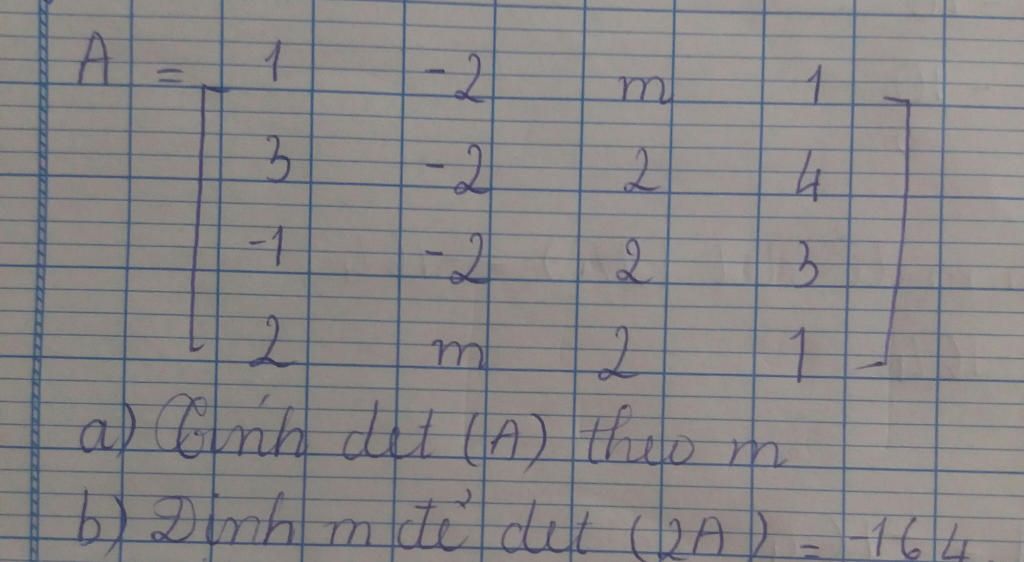 A = [ 1 -2 m 1
3 -2 2 4
-1 -2 2 3
2 m 2 1 ]
a) Tính det (A) theo m
b) Định m để det (2A) = -164